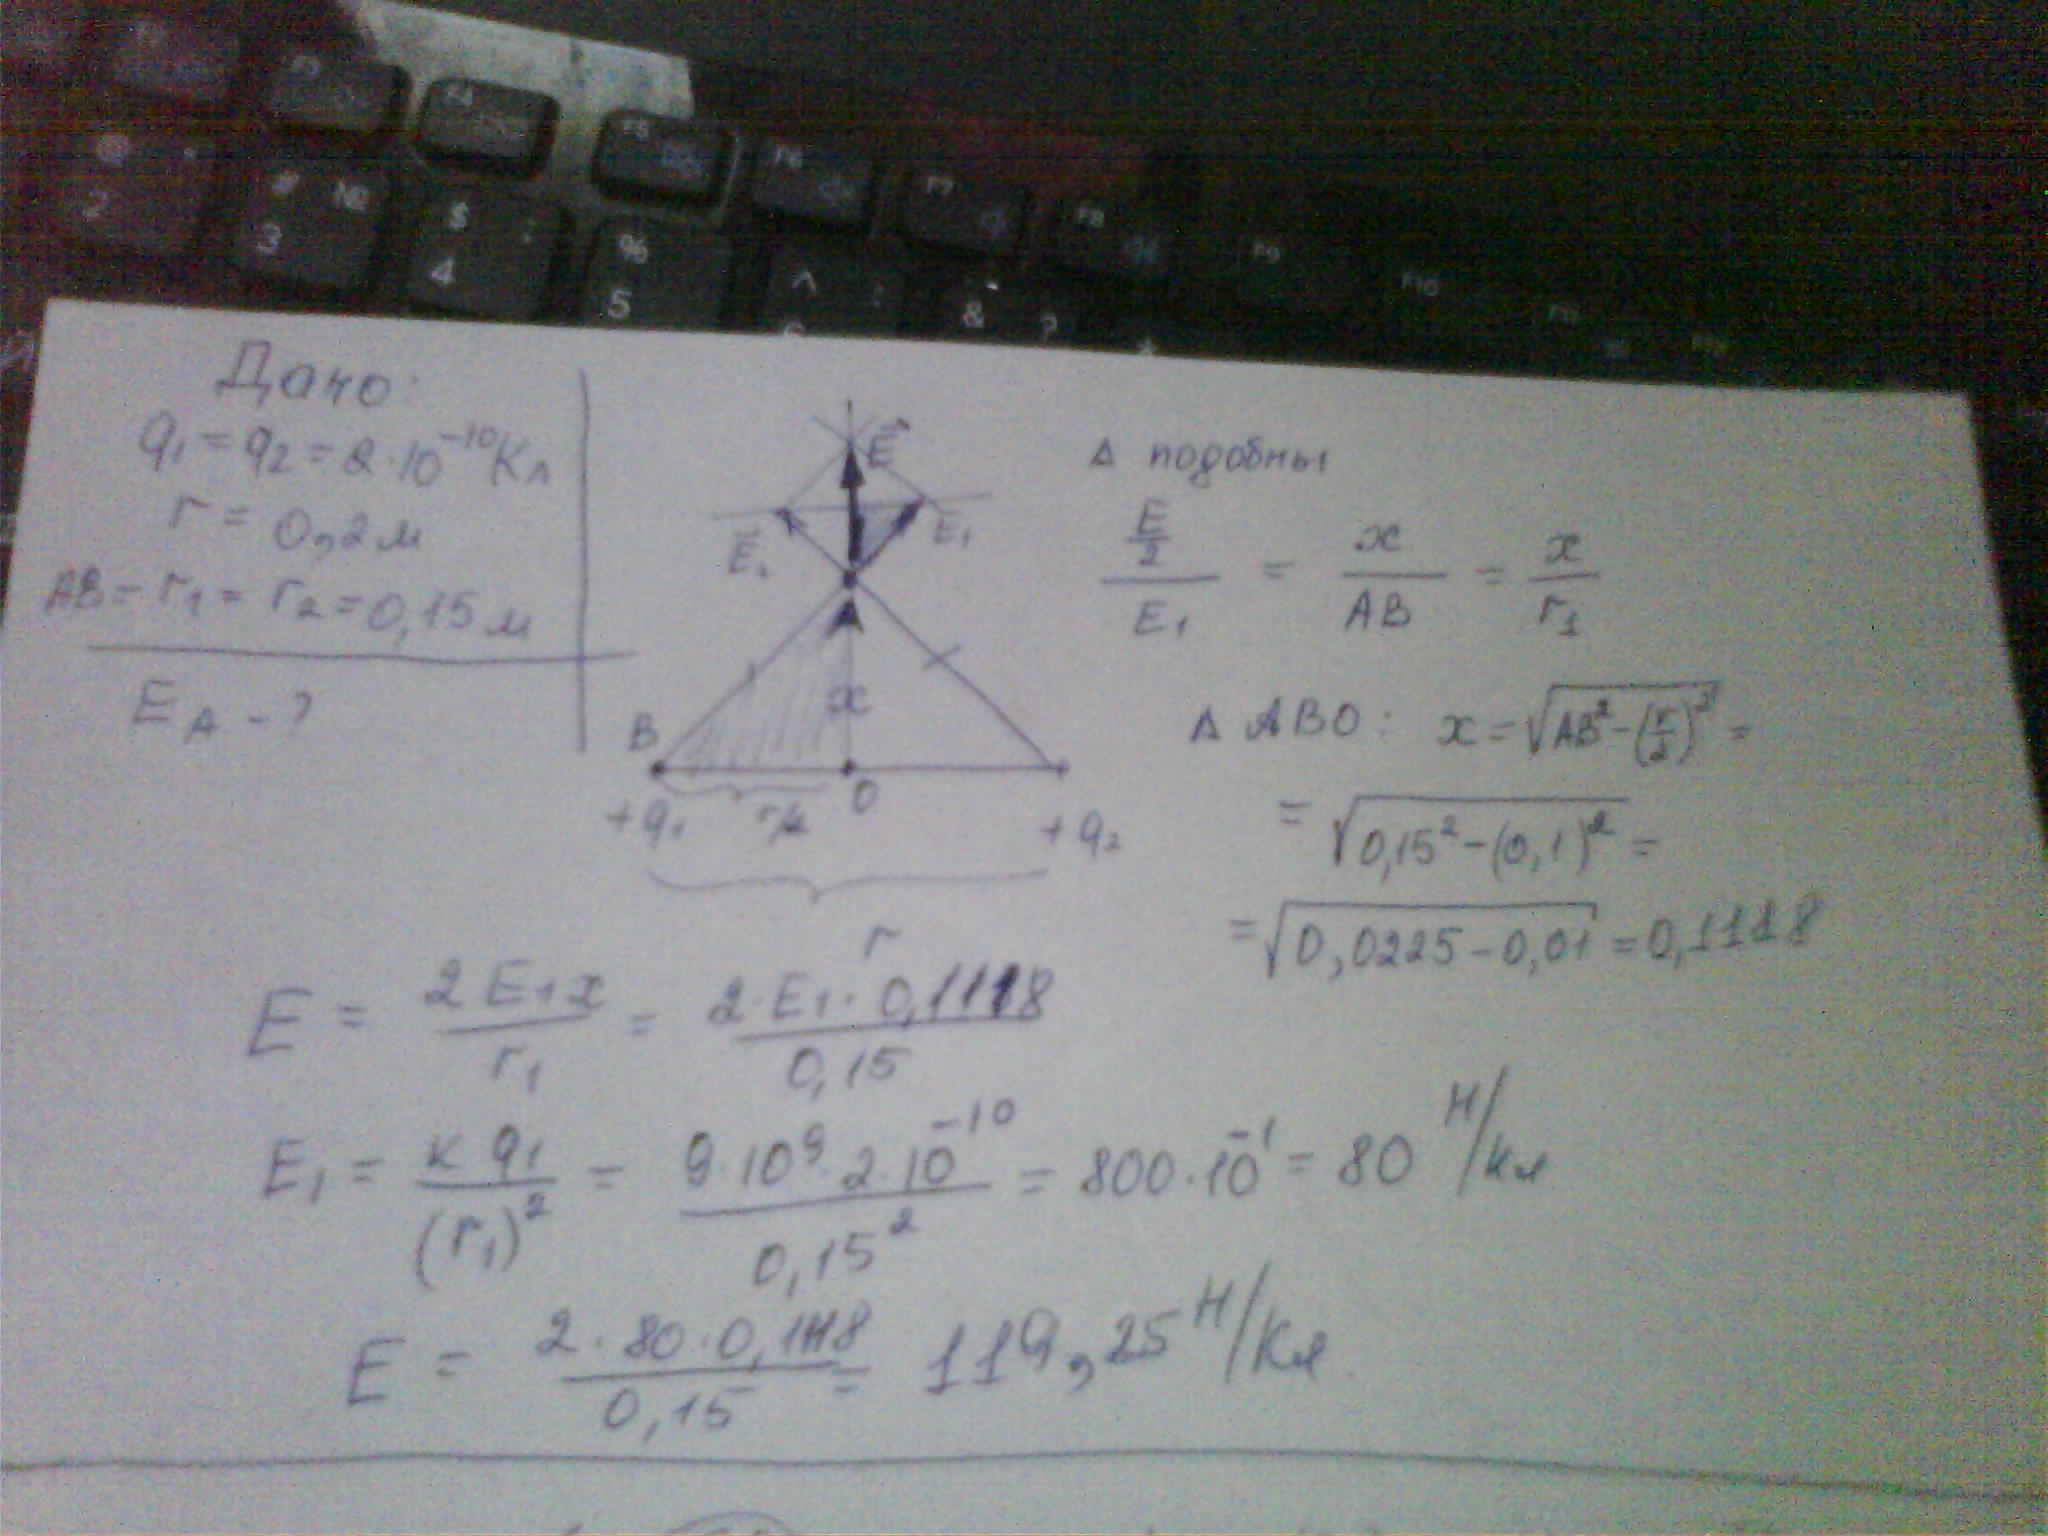 F3
F4
F5
F6
F7
F8
F9
F10
2
# №
3
$ ;
4
%
5
^ :
6
& ?
Дано:
q₁ = q₂ = 2·10⁻¹⁰ Кл
r = 0,2 м
AB = r₁ = r₂ = 0,15 м
E_A - ?
E⃗
E⃗₂ E₁
x
B O
+q₁ r/2 +q₂
r
Δ подобны
(E/2)/E₁ = x/AB = x/r₁
Δ ABO: x = √(AB² - (r/2)²) =
= √(0,15² - (0,1)²) =
= √(0,0225 - 0,01) = 0,1118
E = 2E₁x/r₁ = 2·E₁·0,1118/0,15
E₁ = kq₁/(r₁)² = 9·10⁹·2·10⁻¹⁰/0,15² = 800·10⁻¹ = 80 Н/Кл
E = 2·80·0,1118/0,15 = 119,25 Н/Кл.